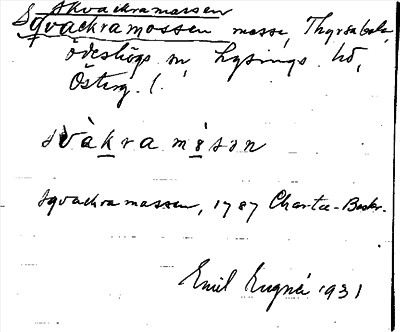 Skvackramossen
Sqvackramossen mosse, Thyrsabola,
Ödeshögs sn, Lysings hd,
Österg. l.
svàkramåsən
Sqvackramossen, 1787 Chartæ-Beskr.
Emil 1931